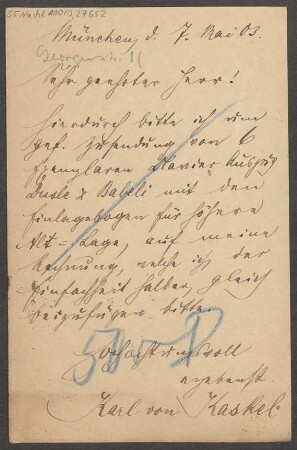 55 Nachl 100/D, 27652
München, d. 7. Mai 03.
Georgenstr. 11
Sehr geehrter Herr!
Hierdurch bitte ich um
gef. Zusendung von 6
Exemplaren Klavier Auszug
Dusle & Babeli mit den
Einlagebogen für höhere
Alt-Lage, auf meine
Rechnung, welche ich der
Einfachheit halber, gleich
beizufügen bitte.
Hochachtungsvoll
ergebenst
Karl von Kaskel.